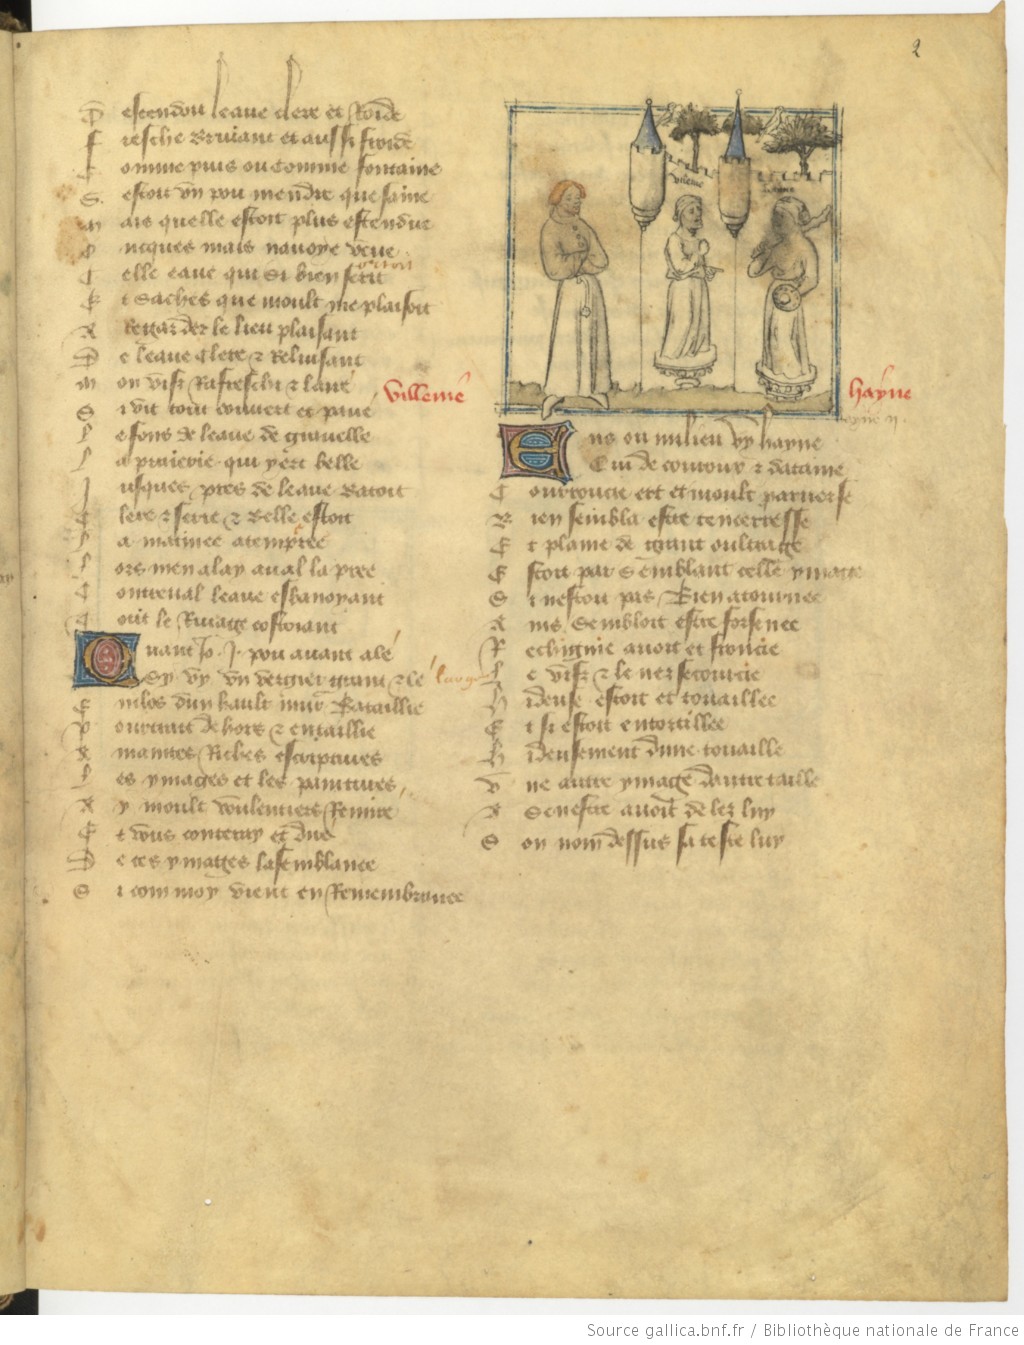 2
Descendoit leaue clere et Roide
Fresche Bruiant et aussi froide
Comme puis ou Comme fontaine
S. estoit vn pou mendre que saine
Mais quelle estoit plus estendue
Oncques mais nauoye veue
Celle eaue qui si bien seoit
Et Saches que moult me plaisoit
A Regarder le lieu plaisant
De leaue Clere & Reluisant
Mon vis Rafreschi & laue
Si vit tout couuert et paue
Le fons de leaue de grauelle
La praierie qui yert belle
Jusques pres de leaue Batoit
Clere & serie & Belle estoit
La matinee atempree
Lors men alay aual la pree
Contreual leaue esbanoyant
Tout le Riuage costoiant
Quant Jo. J. pou auant alé
Sy vy vn vergier grant & lé
Enclos dun hault mur Bataillie
Pourtrait dehors & entaillie
A maintes Riches escriptures
Les ymages et les paintures
Ay moult voulentiers Remire
Et vous conteray et diré
De ces ymages lasemblance
Si com moy vient en Remembrance
villeme
hayne
Ens ou milieu vy hayne
Qui de courour & datame
Courroucie ert et moult peruerse
Bien sembla estre tencerresse
Et plaine de grant oultrage
Estoit par Semblant celle ymage
Si nestoit pas Bien atournee
Ains Sembloit estre forsenee
Rechignie auoit et froncie
Le vis & le nez secourcie
Hideuse estoit et touaillee
Et si estoit entortillee
Hideusement dune touaille
Vne autre ymage dautre taille
A Senestre auoit de lez luy
Son nom dessus sa teste luy
Source gallica.bnf.fr / Bibliothèque nationale de France